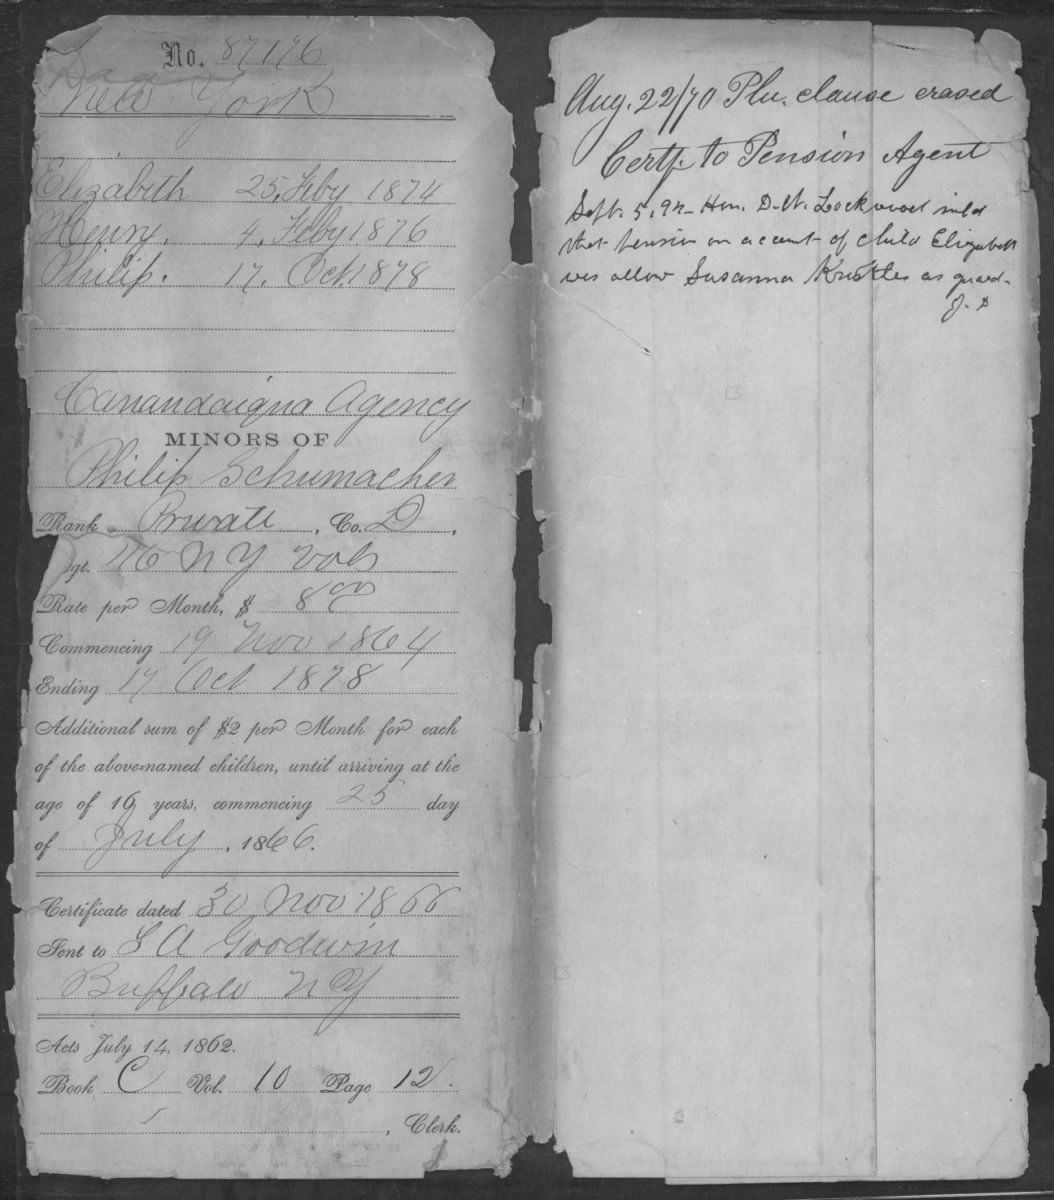 No. 87176
New York
Elizabeth 25, Feby 1874
Henry. 4, Feby 1876
Philip. 17. Oct. 1878
Canandaigua Agency
MINORS OF
Philip Schumacher
Rank Private, Co. D,
gt. 116 NY Vols
Rate per Month, $ 8 00
Commencing 19 Nov 1864
Ending 17 Oct 1878
Additional sum of $2 per Month for each
of the above-named children, until arriving at the
age of 16 years, commencing 25 day
of July, 1866.
Certificate dated 30 Nov 1866
Sent to S A Goodwin
Buffalo NY
Acts July 14, 1862.
Book C Vol. 10 Page 12.
, Clerk.
Aug. 22/70 Phu. clause erased
Certf. to Pension Agent
Sept. 5, 92 - Hon. D. N. Lockwood
that pension on account of child Elizabeth
was allow Susanna as guard.
J. S